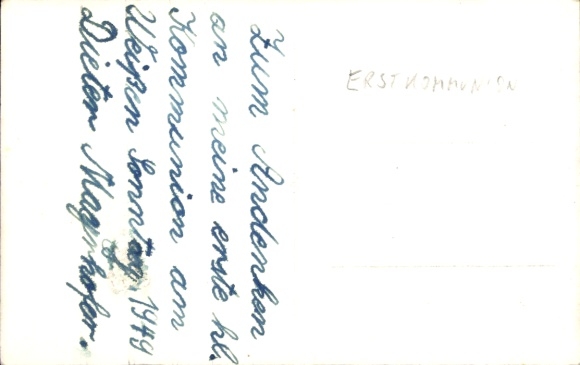 Zum Andenken
an meine erste hl.
Kommunion am
Weißen Sonntag 1949
Dieter Mayrhofer.
ERSTKOMMUNION